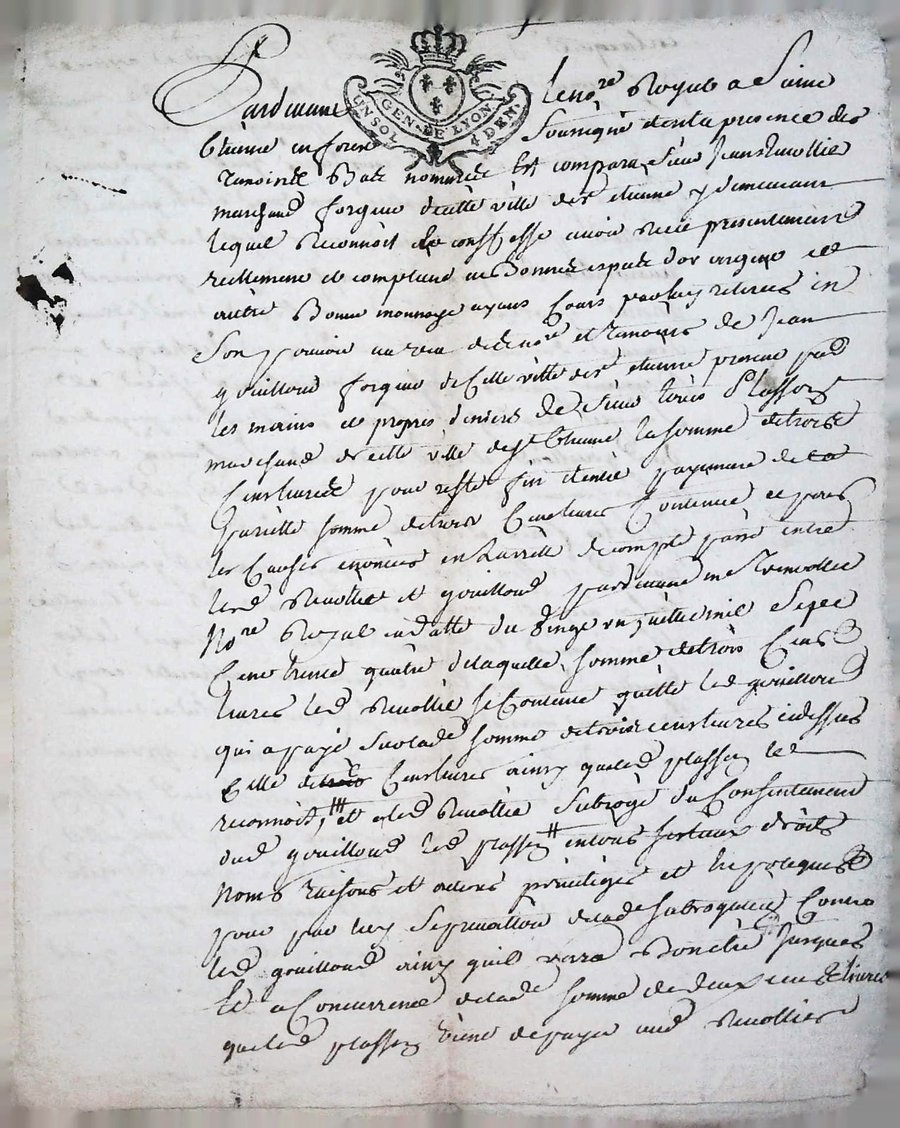 GEN. DE LYON
UN SOL 4 DEN.
Pardevant le no.re Royal a Saint
Etienne en forest Soussigné et en la presence des
temoins Bas nommés Est comparu sieur Jean
marchand forgeur de cette ville de st etienne y demeurant
lequel Reconnoit et conffesse avoir Receu presentement
reellement et comptant en Bonnes especes d'or argent et
autre Bonne monnoye ayant Cours par luy retirées en
Son pouvoir au veu de no.re et temoins de Jean
gouilloud forgeur de Cette ville de st etienne present par
les mains et propres deniers de Sieur Plasson
marchand de cette ville de st Etienne la somme de trois
Cens livres pour reste fin et entié payement de
pareille somme de trois Cens livres Contenue et pour
les Causes enoncées en Larreté de compte passé entre
led et gouilloud pardevant me
No.re Royal en datte du Vingt un juillet mil Sept
Cent trente quatre de laquelle somme de trois Cens
livres led se Contente quitte led gouilloud
qui a payé Sur lad somme de trois cens livres cy dessus
Celle de Cens livres ainsy que led plasson le
reconnoit, et a led Subrogé du Consentement
dud gouilloud led plasson en tous ses lieux droits
noms raisons et actions privileges et hypoteques
pour par luy Se prevalloir de lad.e subrogation Contre
led gouilloud ainsy quil verra Bon etre Jusques
Et a Concurrence de lad.e somme de deux cens livres
que led plasson vient de payer aud